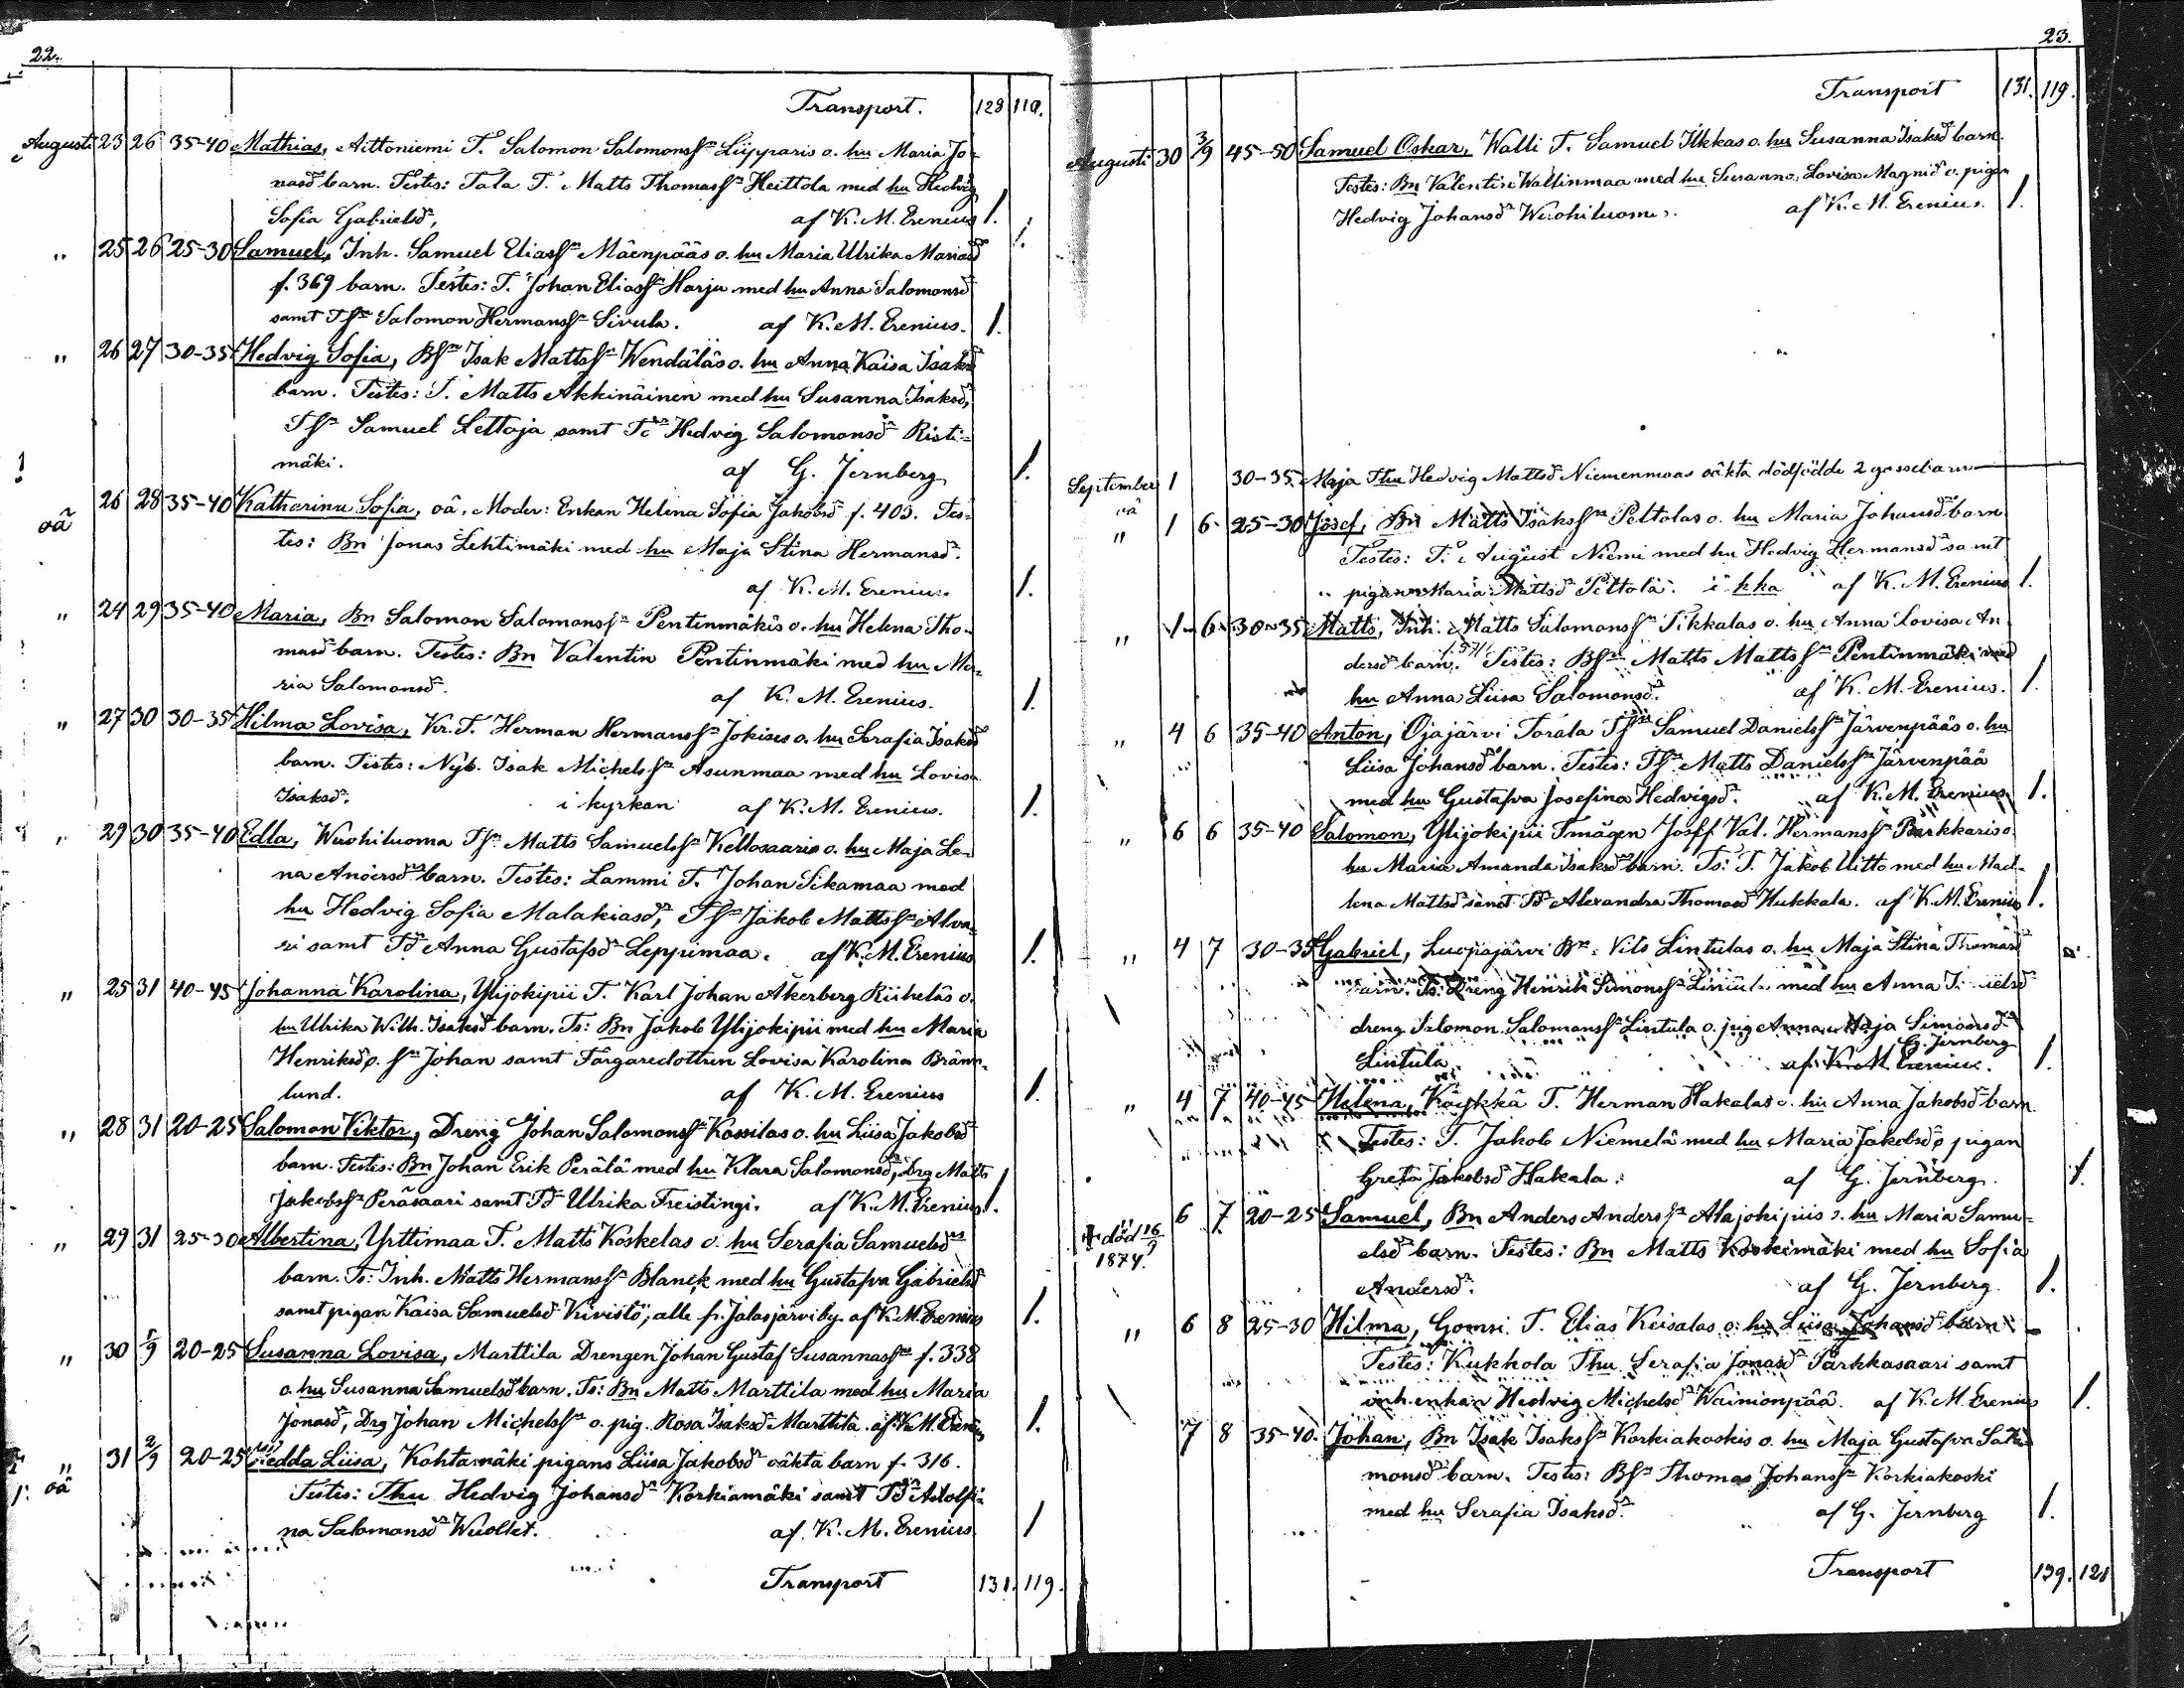 22.
Transport. 128 110.
Augusti 23 26 35-40 Mathias, Aittoniemi T. Salomon Salomonssn Liipparis o. hu Maria Jo-
nasdr barn. Testes: Tala T. Matts Thomassn Heittola med hu Hedvig
Sofia Gabrielsdr, af K. M. Erenius 1.
" 25 26 25-30 Samuel, Inh. Samuel Eliassn Mäenpääs o. hu Maria Ulrika Mariasdr
f. 369 barn. Testes: T. Johan Eliassn Harju med hu Anna Salomonsdr
samt Tsn Salomon Hermanssn Sivula. af K. M. Erenius. 1.
" 26 27 30-35 Hedvig Sofia, Bsn Isak Mattssn Wendäläs o. hu Anna Kaisa Isaksdr
barn. Testes: T. Matts Akkinäinen med hu Susanna Isaksdr,
Tsn Samuel Lettoja samt Tdr Hedvig Salomonsdr Risti-
mäki. af G. Jernberg 1.
oä 26 28 35-40 Katharina Sofia, oä. Moder: Enkan Helena Sofia Jakobsdr f. 403. Tes-
tes: Bn Jonas Lehtimäki med hu Maja Stina Hermansdr.
af K. M. Erenius. 1.
" 24 29 35-40 Maria, Bn Salomon Salomonssn Pentinmäkis o. hu Helena Tho-
masdr barn. Testes: Bn Valentin Pentinmäki med hu Ma-
ria Salomonsdr. af K. M. Erenius. 1.
" 27 30 30-35 Hilma Lovisa, Kr. T. Herman Hermanssn Jokises o. hu Serafia Isaksdr
barn. Testes: Nyb. Isak Michelssn Asunmaa med hu Lovisa
Isaksdr. i kyrkan af K. M. Erenius. 1.
" 29 30 35-40 Edla, Wuohiluoma Tsn Matts Samuelssn Kellosaaris o. hu Maja Le-
na Andersdr barn. Testes: Lammi T. Johan Sikamaa med
hu Hedvig Sofia Malakiasdr, Tsn Jakob Mattssn Alva-
ri samt Tdr Anna Gustafsdr Leppimaa. af K. M. Erenius 1.
" 25 31 40-45 Johanna Karolina, Ylijokipii T. Karl Johan Åkerberg Riiheläs o.
hu Ulrika Wilh. Isaksdr barn. Ts: Bn Jakob Ylijokipii med hu Maria
Henriksdr o. sn Johan samt Färgaredottren Lovisa Karolina Bränn-
lund. af K. M. Erenius 1.
" 28 31 20-25 Salomon Viktor, Dreng Johan Salomonssn Kossilas o. hu Liisa Jakobsdr
barn. Testes: Bn Johan Erik Perälä med hu Klara Salomonsdr, drg Matts
Jakobssn Peräsaari samt Tdr Ulrika Freistingi. af K. M. Erenius 1.
" 29 31 25-30 Albertina, Yrttimaa T. Matts Koskelas o. hu Serafia Samuelsdr
barn. Ts: Inh. Matts Hermanssn Blanck med hu Gustafva Gabrielsdr
samt pigan Kaisa Samuelsdr Kivistö, alle fr. Jalasjärvi by. af K. M. Erenius 1.
" 30 1/9 20-25 Susanna Lovisa, Marttila Drengen Johan Gustaf Susannassn f. 338
o. hu Susanna Samuelsdr barn. Ts: Bn Matts Marttila med hu Maria
Jonasdr, Drg Johan Michelssn o. pig. Rosa Isaksdr Marttila. af K. M. Erenius 1.
oä " 31 2/9 20-25 Hedda Liisa, Kohtamäki pigans Liisa Jakobsdr oäkta barn f. 316.
Testes: Thu Hedvig Johansdr Korkiamäki samt Tdr Adolfi-
na Salomonsdr Wuollet. af K. M. Erenius 1
Transport 131. 119.
23.
Transport 131. 119.
Augusti 30 3/9 45-50 Samuel Oskar, Walli T. Samuel Ilkkas o. hu Susanna Isaksdr barn.
Testes: Bn Valentin Wallinmaa med hu Susanna Lovisa Magnidr o. pigan
Hedvig Johansdr Wuohiluoma. af K. M. Erenius. 1.
September 1 30-35. Maja Thu Hedvig Mattsdr Niemenmaas oäkta dödfödde 2 gossebarn
oä
" 1 6 25-30 Josef, Bn Matts Isakssn Peltolas o. hu Maria Johansdr barn
Testes: T. August Niemi med hu Hedvig Hermansdr samt
pigan Maria Mattsdr Peltola. i kka af K. M. Erenius 1.
" 1 6 30-35 Matts, Inh. Matts Salomonssn Pikkalas o. hu Anna Lovisa An-
dersdr barn. f. 571. Testes: Bsn Matts Mattssn Pentinmäki med
hu Anna Liisa Salomonsdr. af K. M. Erenius. 1.
" 4 6 35-40 Anton, Ojajärvi Torala Tsn Samuel Danielssn Järvenpääs o. hu
Liisa Johansdr barn. Testes: Tsn Matts Danielssn Järvenpää
med hu Gustafva Josefina Hedvigsdr. af K. M. Erenius 1.
" 6 6 35-40 Salomon, Ylijokipii Tmågen Josef Val. Hermanssn Parkkaris o.
hu Maria Amanda Isaksdr barn. Ts: T. Jakob Uitto med hu Mad-
lena Mattsdr samt Tdr Alexandra Thomasdr Hukkala. af K. M. Erenius 1.
" 4 7 30-35 Gabriel, Luopajärvi Bn Vils Lintulas o. hu Maja Stina Thomasdr
barn. Ts: Dreng Henrik Simonssn Lintula med hu Anna
dreng Salomon Salomonssn Lintula o. pig Anna Maja Simonsdr
Lintula. af K. M. Erenius. G. Jernberg 1.
" 4 7 40-45 Helena, Köykkä T. Herman Hakalas o. hu Anna Jakobsdr barn.
Testes: T. Jakob Niemelä med hu Maria Jakobsdr o pigan
Greta Jakobsdr Hakala. af G. Jernberg. 1.
död 16/9 1874. 6 7 20-25 Samuel, Bn Anders Anderssn Alajokipiis o. hu Maria Samu-
elsdr barn. Testes: Bn Matts Koskimäki med hu Sofia
Andersdr. af G. Jernberg. 1.
" 6 8 25-30 Hilma, Gomsi T. Elias Keisalas o. hu Liisa Johansdr barn
Testes: Kukkola Thu Serafia Jonasdr Parkkasaari samt
inh.enkan Hedvig Michelsdr Wainionpää. af K. M. Erenius 1.
7 8 35-40. Johan, Bn Isak Isakssn Korkiakoskis o. hu Maja Gustafva Salo-
monsdr barn. Testes: Bsn Thomas Johanssn Korkiakoski
med hu Serafia Isaksdr. af G. Jernberg 1.
Transport 139. 121